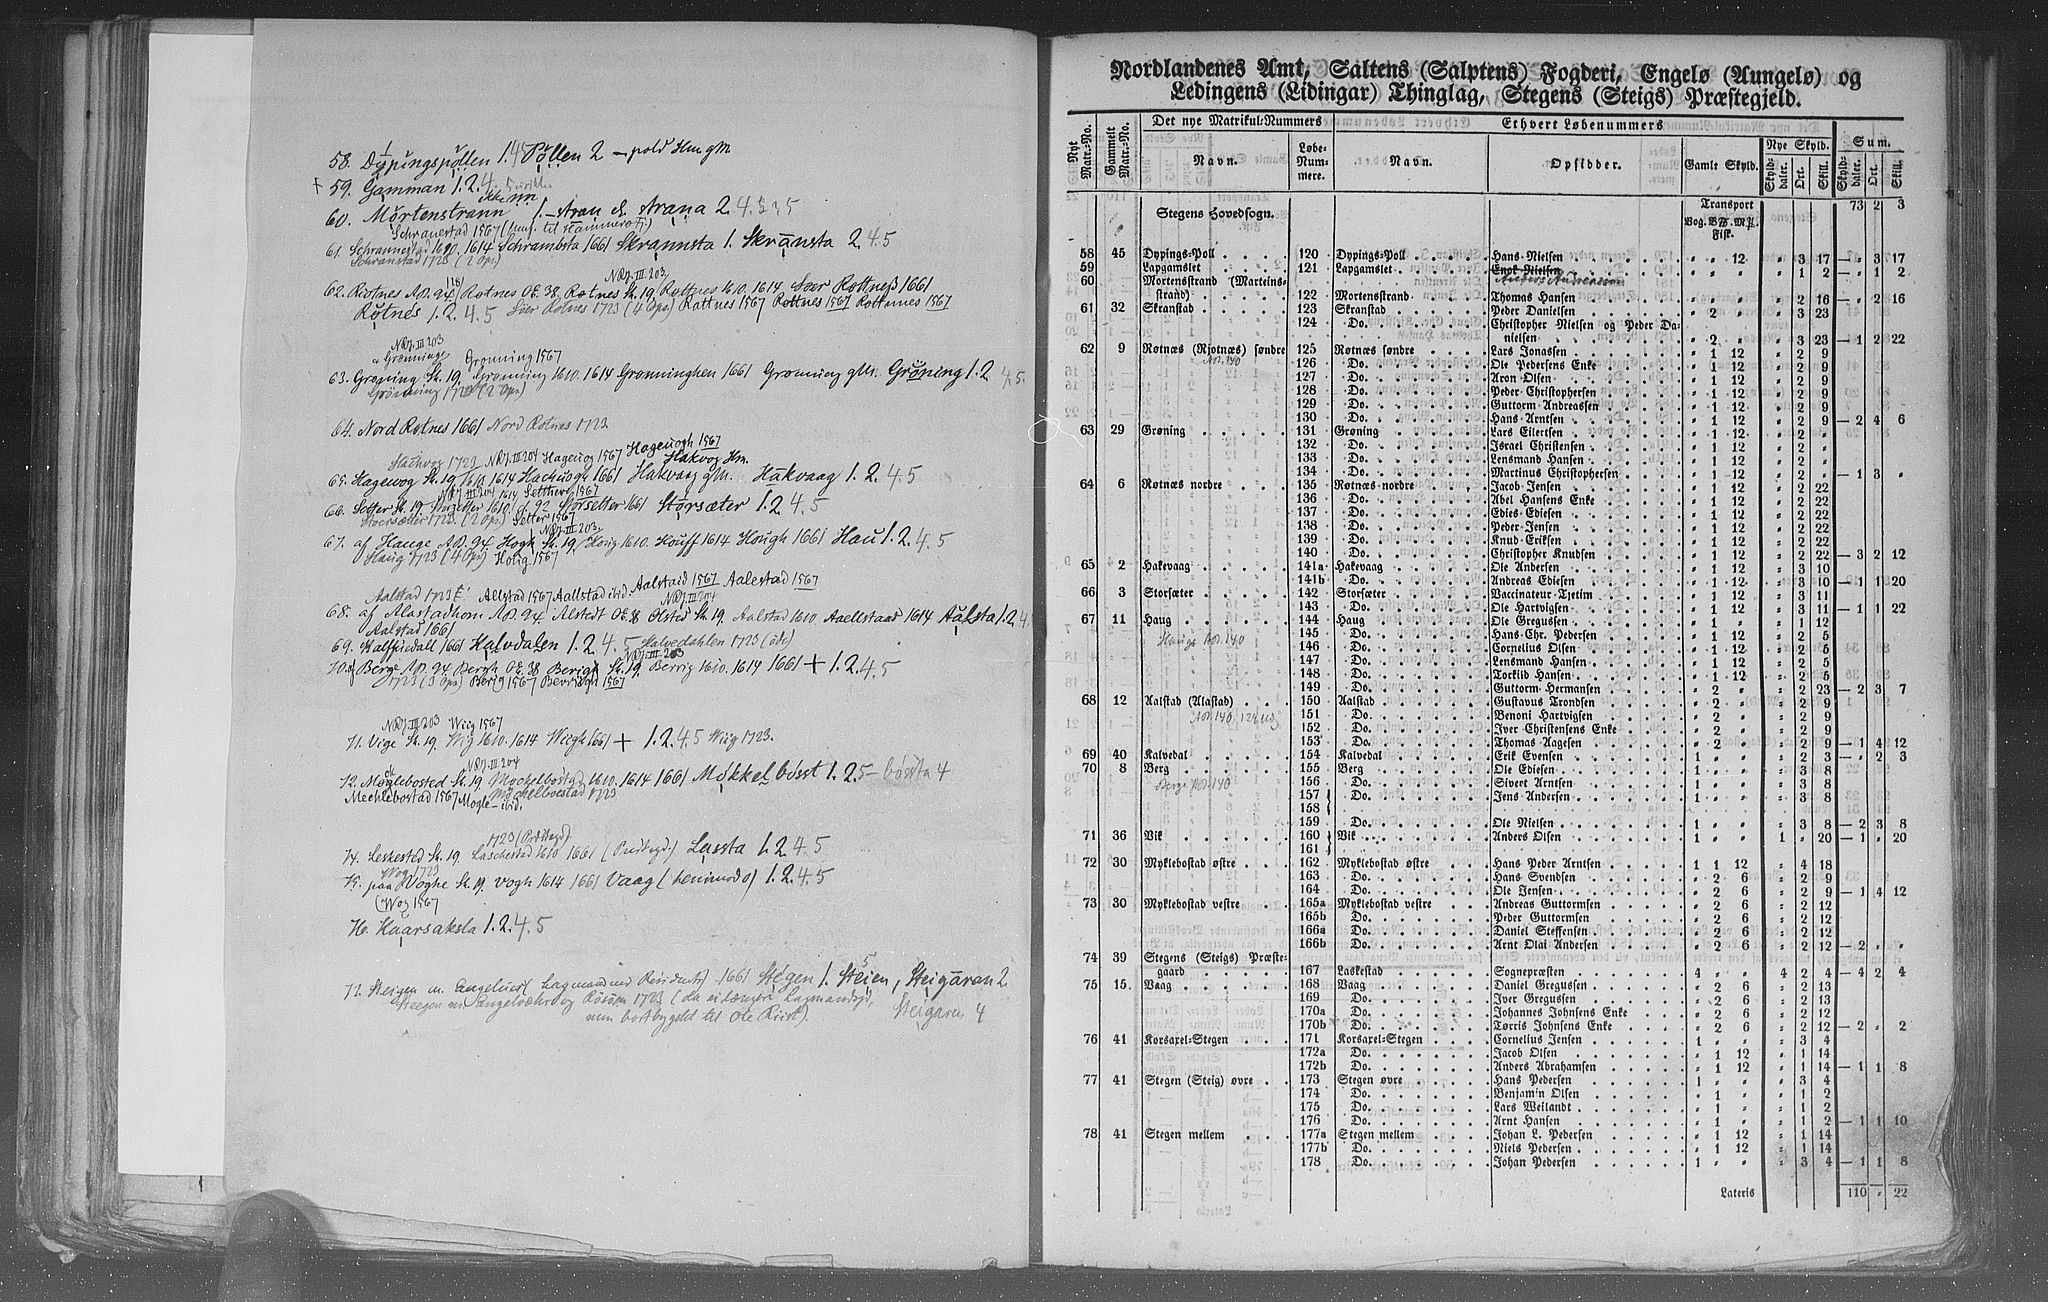 58. Dypingspollen 1.4 Pollen 2 – pold Hm gM
+ 59. Gamman 1.2.4.
60. Mörtenstrann 1. – stran & strana 2 4.5
Schranestad 1567
61. Schrannestad 1610. 1614 Schrambsta 1661 Skrannsta 1. Skränsta 2.4.5
Schranstad 1723 (2 Ops.)
NRJ. III 203
62. Riotnes AB. 94 Rotnes OE. 38. Rotnes Sk. 19 Rottnes 1610. 1614 Sør Rottneß 1661
Rotnes 1.2.4.5 Sør Rotnes 1723 (4 Ops.) Rottnes 1567 Rottnes 1567 Rottemes 1567
NRJ. III 203
Grønninge Grønning 1567
63. Grøning Sk. 19. Grønning 1610. 1614 Grønninghen 1661 Grønning gM. Grøning 1.2 4.5.
Grønning 1723 (2 Ops.)
64. Nord Rotnes 1661 Nord Rotnes 1723
Hachvog 1723 NRJ. III 204 Hageuog 1567 Hageuogh 1567
Hakvog Hm.
65. Hagevog Sk. 19 1610. 1614 Hachuogh 1661 Hakvaag gM. Hakvaag 1.2.4.5
NRJ. III 204 1614 Setther 1567
66. Setter Sk. 19. Storsetter 1610. Storsetter 1661 Storsæter 1.2.4.5
Stoersætter 1723 (2 Ops.) Setter 1567
NRJ. III 203
67. af Hauge AB. 94 Hogh Sk. 19. Houg 1610. Houff 1614 Hough 1661 Hau 1.2.4.5
Haug 1723 (4 Ops) Holig 1567
Aalstad 1723 Allstad 1567 Aallstad ibid. Aalstaid 1567 Aalestad 1567
NRJ. III 204
68. af Alastadhom AB. 94. Alstedt OE. 38 Olsted Sk. 19. Aalstad 1610 Aaellstaad 1614 Aalsta 1.2 4
Aalstad 1661
69. Kalffuedall 1661 Kalvdalen 1.2.4.5 Kalvedahlen 1723 (øde)
NRJ. III 203
70. af Berge AB. 94. Bergh OE. 38 Berigh Sk. 19. Berrig 1610. 1614 1661 + 1.2.4.5
1723 (3 Ops) Berig 1567 Berrigh 1567
NRJ. III 203 Wiig 1567
71. Vige Sk. 19. Wiig 1610. 1614 Wiigh 1661 + 1.2.4.5 Wiig 1723.
NRJ. III 204
72. Møglebosted Sk. 19 Myckelbostad 1610. 1614 1661 Møkkelbösst 1.2.5 – bössta 4
Mechlebostad 1567 Mogle – ibid. Myckelboestad 1723
1723 (Præstegd.)
74. Leskested Sk. 19. Laschestad 1610 1661 (Prestegd.) Lassta 1.2.4.5
Wog 1723
75. paa Woghe Sk. 19. Vogh 1614 1661 Vaag (hemmed o) 1.2.4.5
(Wog 1567
76. Kaarsaksla 1.2.4.5
77. Steigen m. Engeluer (Lagmannens Residents) 1661 Stegen 1. Steien, Steigaran 2
Steegen m. Engelvæhr og Røsum 1723 (da ei længer Lagmandsgd, Steigaren 4
men bortbygslet til Ole Riist).
Nordlandenes Amt, Saltens (Salptens) Fogderi, Engelø (Aungelø) og
Ledingens (Lidingar) Thinglag, Stegens (Steigs) Præstegjeld.
Nyt Matr.-No. Gammelt Matr.-No. Det nye Matrikul-Nummers Ethvert Løbenummers Sum.
Navn. Løbe-Nummere. Navn. Opsidder. Gamle Skyld. Nye Skyld. Skylddaler. Ort. Skill. Skylddaler. Ort. Skill.
Transport 73 2 3
Stegens Hovedsogn. Vog. B℔. M℔. Fisk.
58 45 Dypings-Poll 120 Dypings-Poll Hans Nielsen " " 12 " 3 17 – " 3 17
59 Lapgamslet 121 Lapgamslet Enok Nielsen " " " " 1 2 – " 1 2
Anders Andreassen
60 Mortensstrand (Marteins-
strand) 122 Mortensstrand Thomas Hansen " " " " 2 16 – " 2 16
61 32 Skranstad 123 Skranstad Peder Danielsen " 2 " " 3 23
124 Do. Christopher Nielsen og Peder Da-
nielsen " 2 " " 3 23 – 1 2 22
62 9 Rotnæs (Rjotnæs) søndre 125 Rotnæs søndre Lars Jonassen " 1 12 " 2 9
No. 140
126 Do. Ole Pedersens Enke " 1 12 " 2 9
127 Do. Aron Olsen " 1 12 " 2 9
128 Do. Peder Christophersen " 1 12 " 2 9
129 Do. Guttorm Andreassen " 1 12 " 2 9
130 Do. Hans Arntsen " 1 12 " 2 9 – 2 4 6
63 29 Grøning 131 Grøning Lars Eilertsen " 1 12 " 2 "
132 Do. Israel Christensen " 1 12 " 2 "
133 Do. Lensmand Hansen " 1 12 " 2 "
134 Do. Martinus Christophersen " 1 12 " 2 " – 1 3 "
64 6 Rotnæs nordre 135 Rotnæs nordre Jacob Jensen " 1 12 " 2 22
136 Do. Abel Hansens Enke " 1 12 " 2 22
137 Do. Edies Ediesen " 1 12 " 2 22
138 Do. Peder Jensen " 1 12 " 2 22
139 Do. Knud Eriksen " 1 12 " 2 22
140 Do. Christopher Knudsen " 1 12 " 2 22 – 3 2 12
65 2 Hakevaag 141a Hakevaag Ole Andersen " 1 12 " 3 10
141b Do. Andreas Ediesen " 1 12 " 3 10 – 1 1 20
66 3 Storsæter 142 Storsæter Vaccinateur Tjetim " 1 12 " 3 11
143 Do. Ole Hartvigsen " 1 12 " 3 11 – 1 1 22
67 11 Haug 144 Haug Ole Gregusen " 1 " " 1 12
Hauge No. 140
145 Do. Hans Chr. Pedersen " 1 12 " 2 5
146 Do. Cornelius Olsen " 1 12 " 2 5
147 Do. Lensmand Hansen " 1 12 " 2 5
148 Do. Torkild Hansen " 1 12 " 2 5
149 Do. Guttorm Hermansen " 2 " " 2 23 – 2 3 7
68 12 Aalstad (Alastad) 150 Aalstad Gustavus Trondsen " 2 " " 2 9
151 Do. Benoni Hartvigsen " 2 " " 2 9
152 Do. Iver Christensens Enke " 2 " " 2 9
153 Do. Thomas Aagesen " 2 " " 2 9 – 1 4 12
69 40 Kalvedal 154 Kalvedal Erik Evensen 1 " " " 2 3 – " 2 3
70 8 Berg 155 Berg Ole Ediesen 1 " " " 3 8
Berge No. 140
156 Do. Sivert Arntsen 1 " " " 3 8
157 Do. Jens Andersen 1 " " " 3 8
158
159 Do. Ole Nielsen 1 " " " 3 8 – 2 3 8
71 36 Vik 160 Vik Anders Olsen 1 " " 1 " 20 – 1 " 20
161
72 30 Myklebostad østre 162 Myklebostad østre Hans Peder Arntsen 1 1 12 " 4 18
163 Do. Hans Svendsen " 2 6 " 2 9
164 Do. Ole Jensen " 2 6 " 2 9 – 1 4 12
73 30 Myklebostad vestre 165a Myklebostad vestre Andreas Guttormsen " 2 6 " 2 12
165b Do. Peder Guttormsen " 2 6 " 2 12
166a Do. Daniel Steffensen " 2 6 " 2 12
166b Do. Arnt Olai Andersen " 2 6 " 2 12 – 2 " "
74 39 Stegens (Steigs) Præste-
gaard 167 Laskestad Sognepræsten 4 " " 4 2 4 – 4 2 4
75 15 Vaag 168 Vaag Daniel Gregussen " 2 6 " 2 13
169 Do. Iver Gregussen " 2 6 " 2 13
170a Do. Johannes Johnsens Enke " 2 6 " 2 12
170b Do. Tørris Johnsens Enke " 2 6 " 2 12 – 2 " 2
76 41 Korsaxel-Stegen 171 Korsaxel-Stegen Cornelius Jensen 1 " " " 3 4
172a Do. Jacob Olsen " 1 12 " 1 14
172b Do. Anders Abrahamsen " 1 12 " 1 14 – 1 1 8
77 41 Stegen (Steig) øvre 173 Stegen øvre Hans Pedersen 1 " " " 3 4
174 Do. Benjamin Olsen " 1 " " 1 2
175 Do. Lars Weilandt " 1 " " 1 2
176 Do. Arnt Hansen " 1 " " 1 2 – 1 1 10
78 41 Stegen mellem 177a Stegen mellem Johan L. Pedersen " 1 12 " 1 14
177b Do. Niels Pedersen " 1 12 " 1 14
178 Do. Johan Pedersen 1 " " " 3 4 – 1 1 8
Lateris 110 " 22